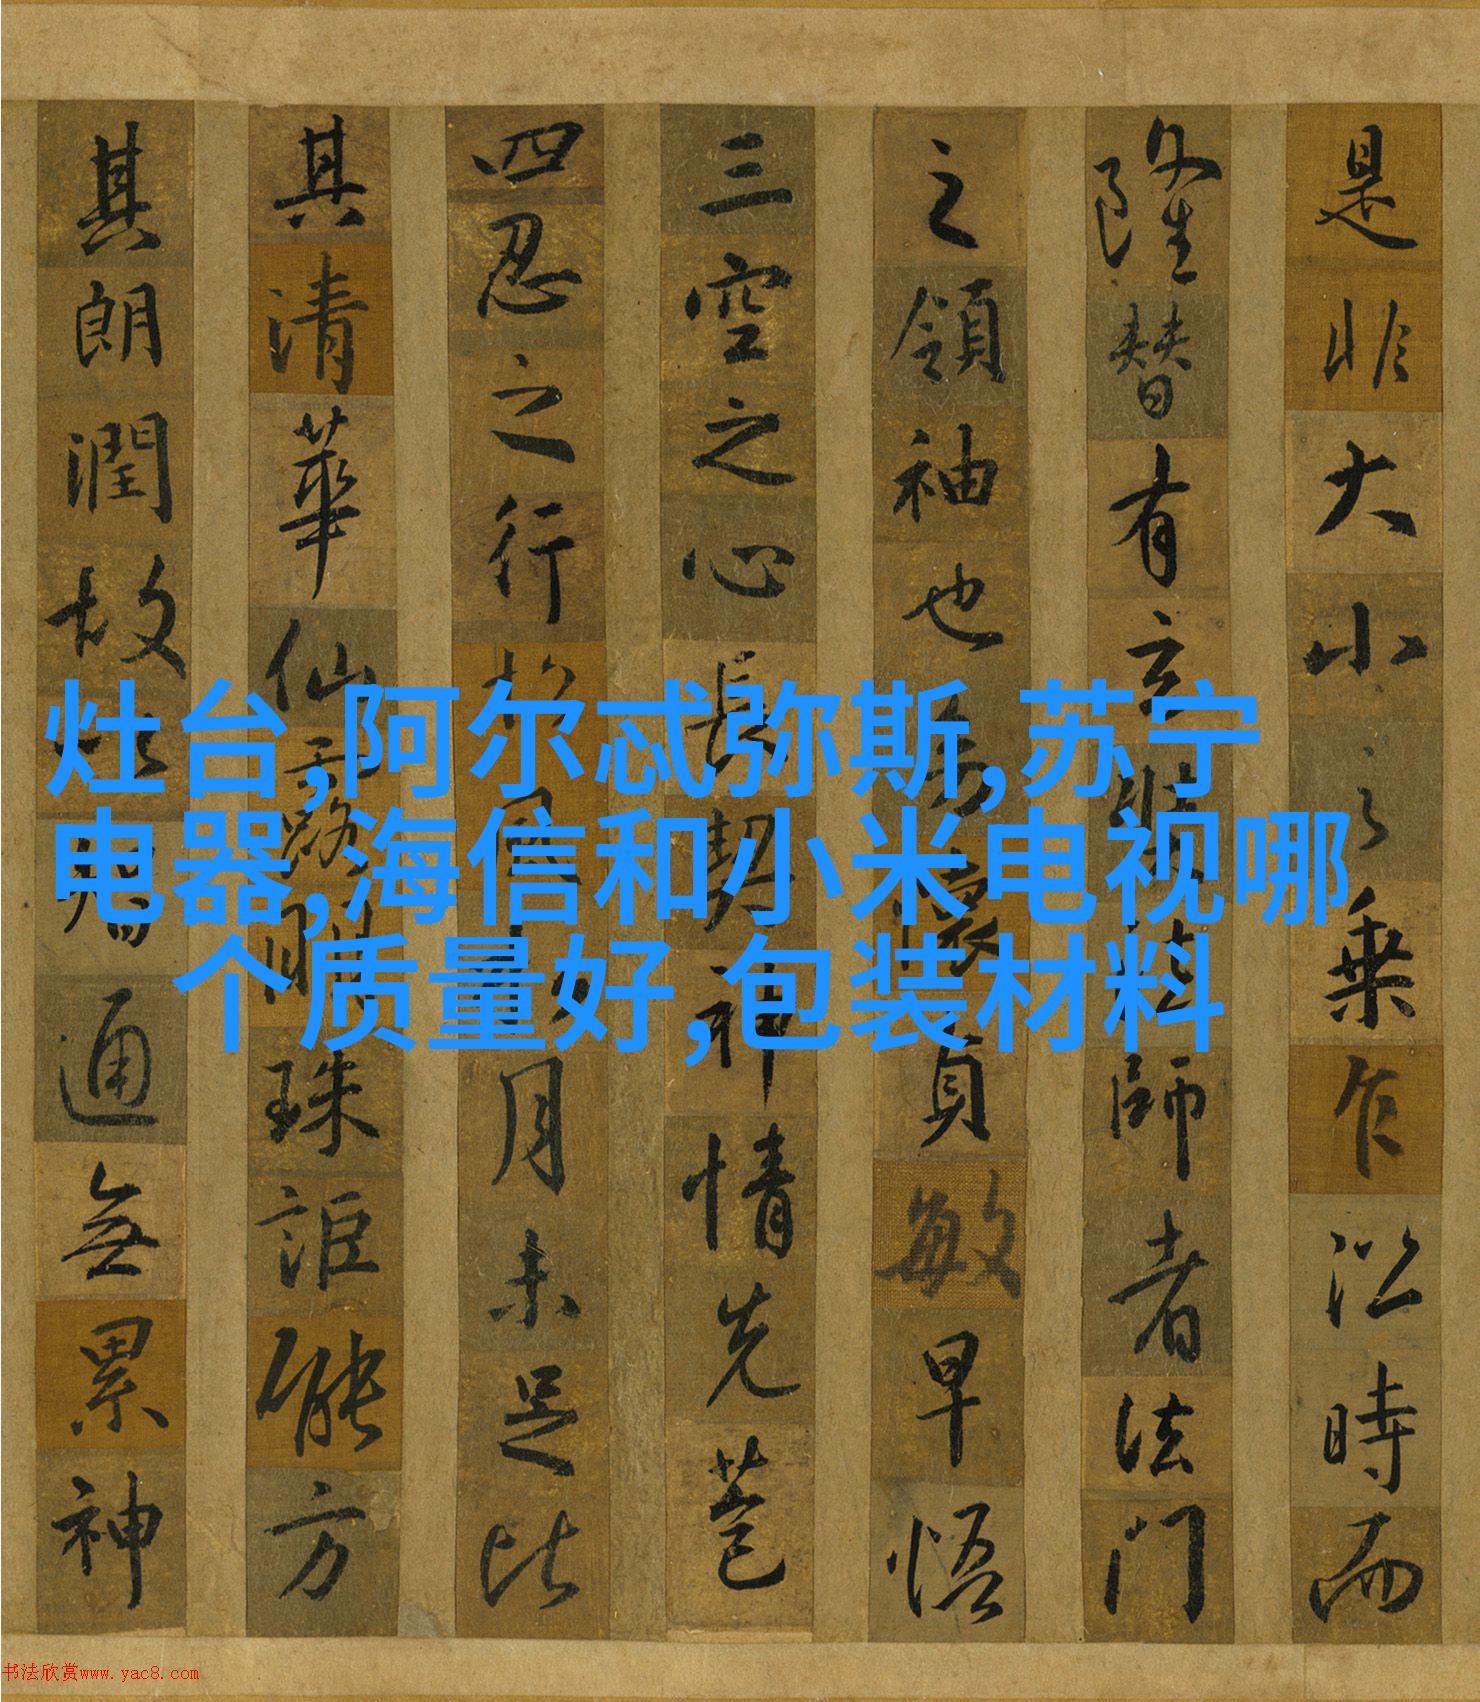 是非大小之乘乍沿時而
隆替有玄奘法師者法門
之領袖也幼懷貞敏早悟
三空之心長契神情先苞
四忍之行松風水月未足比
其清華仙露明珠詎能方
其朗潤故以智通無累神
灶台,阿尔忒弥斯,苏宁
电器,海信和小米电视哪
个质量好,包装材料
书法欣赏www.yac8.com